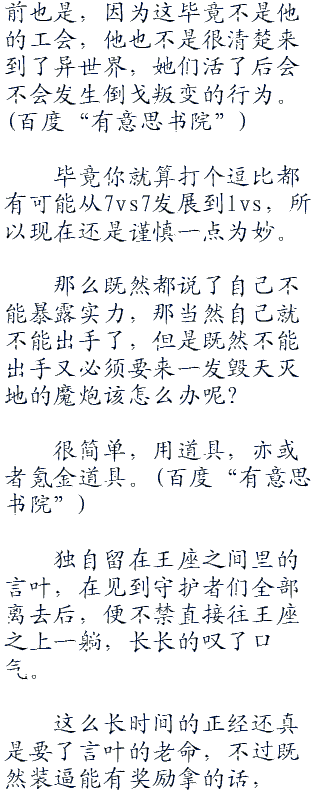 前也是，因为这毕竟不是他
的工会，他也不是很清楚来
到了异世界，她们活了后会
不会发生倒戈叛变的行为。
(百度“有意思书院”)
毕竟你就算打个逗比都
有可能从7vs7发展到1vs，所
以现在还是谨慎一点为妙。
那么既然都说了自己不
能暴露实力，那当然自己就
不能出手了，但是既然不能
出手又必须要来一发毁天灭
地的魔炮该怎么办呢？
很简单，用道具，亦或
者氪金道具。(百度“有意思
书院”)
独自留在王座之间里的
言叶，在见到守护者们全部
离去后，便不禁直接往王座
之上一躺，长长的叹了口
气。
这么长时间的正经还真
是要了言叶的老命，不过既
然装逼能有奖励拿的话，